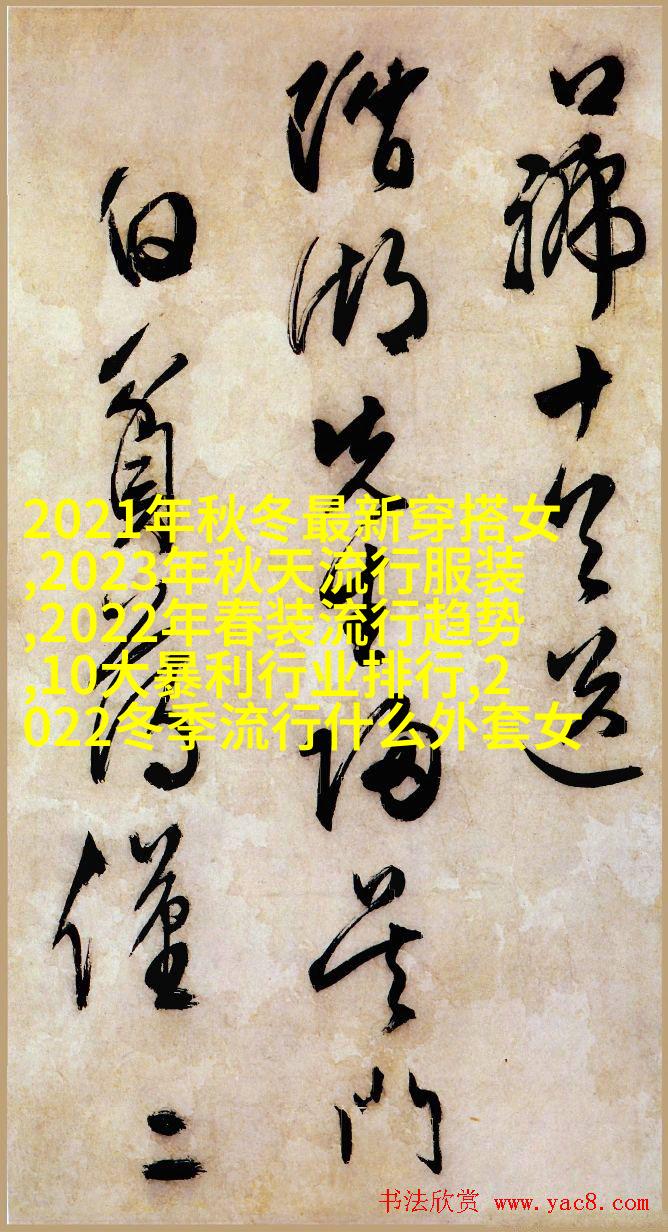 口號十送
湖先生歸吳門
僅二
2021年秋冬最新穿搭女
,2023年秋天流行服装
,2022年春装流行趋势
,10大暴利行业排行,2
022冬季流行什么外套女
书法欣赏 www.yac8.com